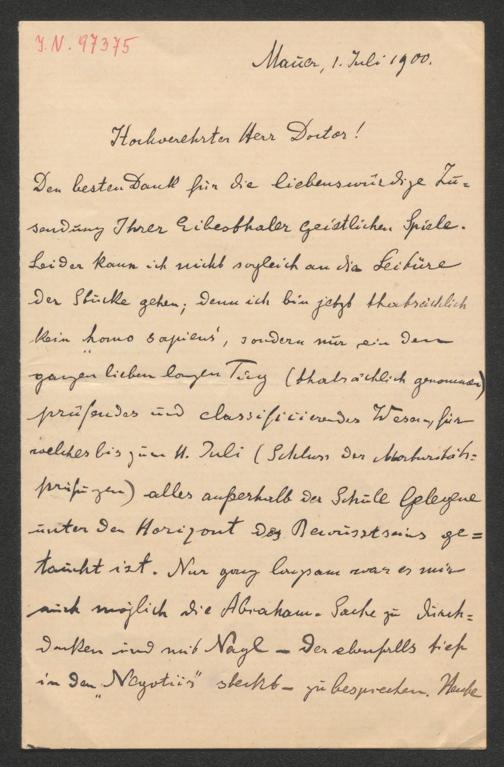 J. N. 97375
Mauer, 1. Juli 1900.
Hochverehrter Herr Doctor!
Den besten Dank für die liebenswürdige Zu=
sendung Ihrer Eibesthaler geistlichen Spiele.
Leider kann ich nicht sogleich an die Lektüre
der Stücke gehen; denn ich bin jetzt thatsächlich
kein „homo sapiens", sondern nur ein den
ganzen lieben langen Tag (thatsächlich genommen)
prüfendes und classificierendes Wesen, für
welches bis zum 11. Juli (Schluss der Maturitäts=
prüfungen) alles außerhalb der Schule Gelegene
unter den Horizont des Bewusstseins ge=
taucht ist. Nur ganz langsam war es mir
auch möglich die Abraham-Sache zu durch=
denken und mit Nagl – der ebenfalls tief
in den „Negotiis" steckt – zu besprechen. Heute